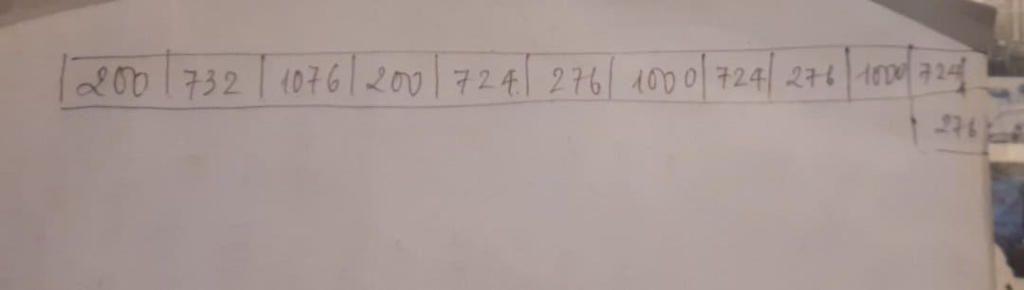 200 732 1076 200 724 276 1000 724 276 1000 724
276